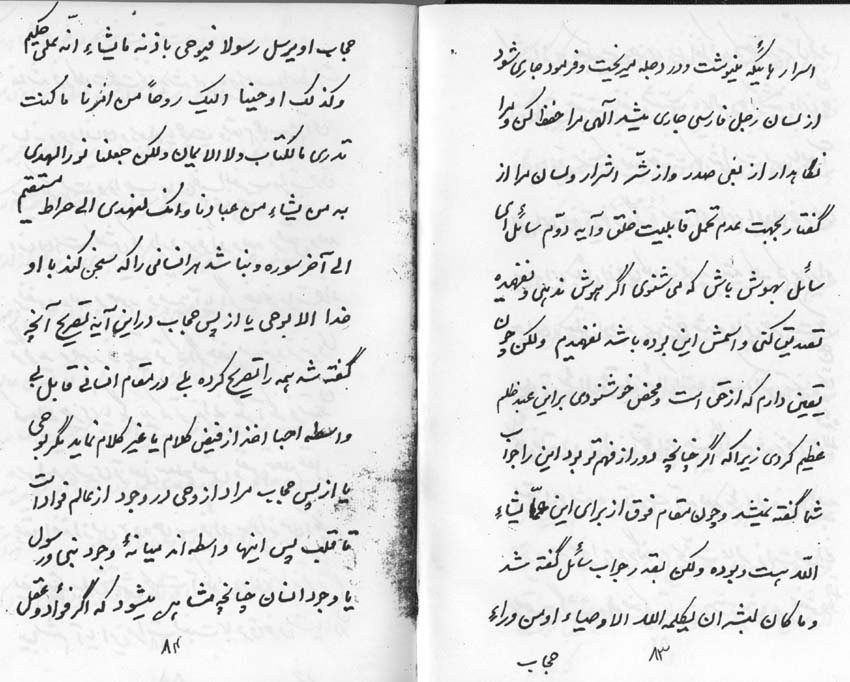 اسرار باینکه مینوشت و در دجله میریخت و فرمود جاری شود
از لسان رجل فارسی جاری میشد آلهی مرا حفظ کن و مرا
نگاهدار از نفی صدر و از شر اشرار و لسان مرا از
گفتار بجهت عدم تحمل قابلیت خلق و آیه دوّم سائل ای
سائل بهوش باش که می شنوی اگر هوش ندهی و نفهمیده
تصدیق کنی و اسمش این بوده باشد نفهمیدم ولکن چون
یقین دارم که از حق است و محض خوشنودی بر این عبد ظلم
عظیم کردی زیرا که اگر چنانچه دور از فهم تو بود این جواب را
شما گفته نمیشد و چون مقام فوق از برای این ممّا یشاء
الله هست و بوده ولکن بقدر جواب سائل گفته شد
و ما کان لبشر ان یکلمه الله الا وحیاء او من وراء
حجاب
۸۳
حجاب او یرسل رسولا فیوحی باذنه ما یشاء انّه علی حکیم
و کذلک اوحینا الیک روحاً من امرنا ما کنت
تدری ما الکتاب و لا الایمان ولکن جعلنا نورا لهدی
به من یشاء من عبادنا و انک لتهدی الی صراط مستقیم
الی آخر سوره و نباشد هر انسانی را که سخن کند با او
خدا الا بوحی یا از پس حجاب در این آیه تصریح آنچه
گفته شد همه را تصریح کرده بلی در مقام انسانی قابل بی
واسطه اجبا اخذ از فیض کلام یا غیر کلام نماید مگر بوحی
یا از پس حجاب مراد از وحی در وجود از عالم فواد است
تا قلب پس اینها واسطه اند میانهٔ وجود نبی و رسول
یا وجود انسان چنانچه مشاهد میشود که اگر فؤاد و عقل
۸۴